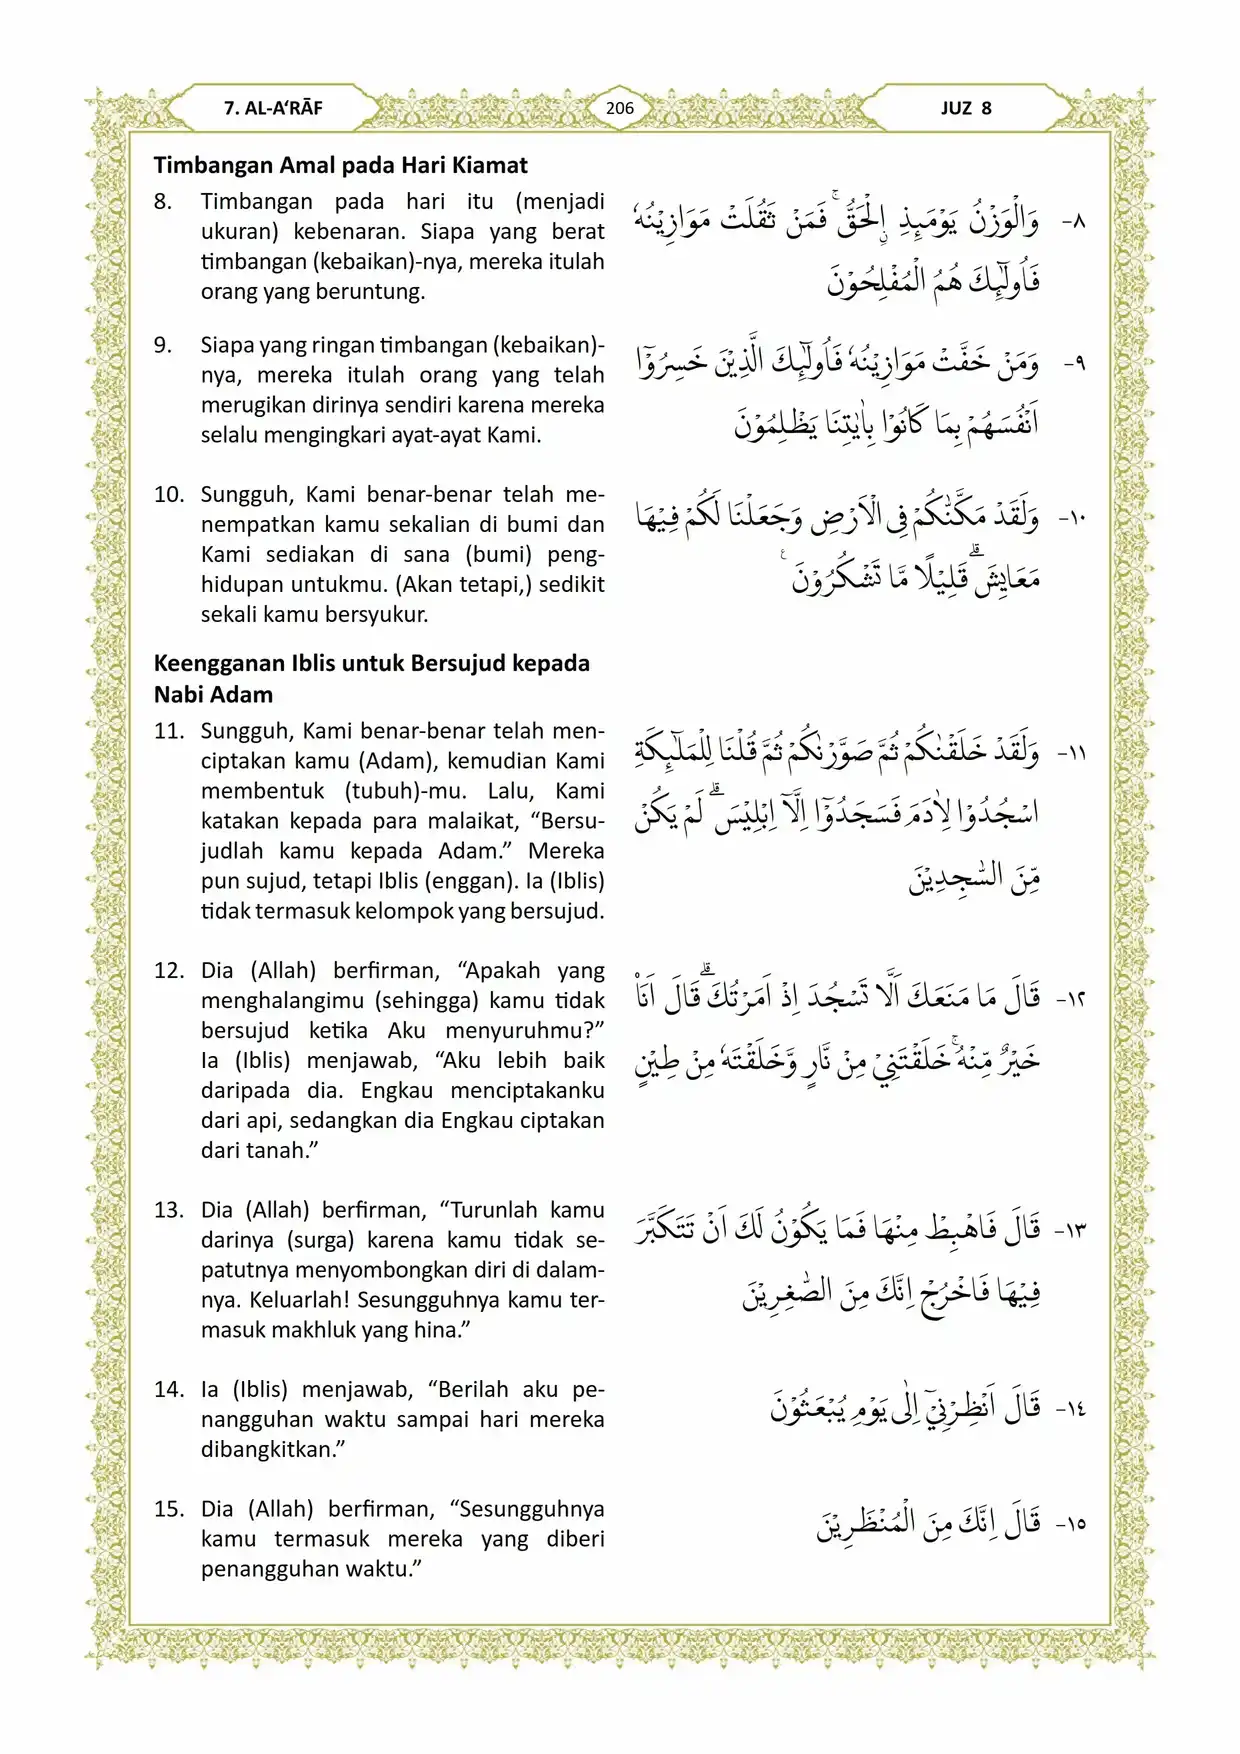 7. AL-A‘RĀF
206
JUZ 8
Timbangan Amal pada Hari Kiamat
8. Timbangan pada hari itu (menjadi
ukuran) kebenaran. Siapa yang berat
timbangan (kebaikan)-nya, mereka itulah
orang yang beruntung.
٨- وَالْوَزْنُ يَوْمَىِٕذِ ِۨالْحَقُّۚ فَمَنْ ثَقُلَتْ مَوَازِيْنُهٗ
فَاُولٰۤىِٕكَ هُمُ الْمُفْلِحُوْنَ
9. Siapa yang ringan timbangan (kebaikan)-
nya, mereka itulah orang yang telah
merugikan dirinya sendiri karena mereka
selalu mengingkari ayat-ayat Kami.
٩- وَمَنْ خَفَّتْ مَوَازِيْنُهٗ فَاُولٰۤىِٕكَ الَّذِيْنَ خَسِرُوْٓا
اَنْفُسَهُمْ بِمَا كَانُوْا بِاٰيٰتِنَا يَظْلِمُوْنَ
10. Sungguh, Kami benar-benar telah me-
nempatkan kamu sekalian di bumi dan
Kami sediakan di sana (bumi) peng-
hidupan untukmu. (Akan tetapi,) sedikit
sekali kamu bersyukur.
١٠- وَلَقَدْ مَكَّنّٰكُمْ فِى الْاَرْضِ وَجَعَلْنَا لَكُمْ فِيْهَا
مَعَايِشَۗ قَلِيْلًا مَّا تَشْكُرُوْنَ ࣖ
Keengganan Iblis untuk Bersujud kepada
Nabi Adam
11. Sungguh, Kami benar-benar telah men-
ciptakan kamu (Adam), kemudian Kami
membentuk (tubuh)-mu. Lalu, Kami
katakan kepada para malaikat, “Bersu-
judlah kamu kepada Adam.” Mereka
pun sujud, tetapi Iblis (enggan). Ia (Iblis)
tidak termasuk kelompok yang bersujud.
١١- وَلَقَدْ خَلَقْنٰكُمْ ثُمَّ صَوَّرْنٰكُمْ ثُمَّ قُلْنَا لِلْمَلٰۤىِٕكَةِ
اسْجُدُوْا لِاٰدَمَ فَسَجَدُوْٓا اِلَّآ اِبْلِيْسَۗ لَمْ يَكُنْ
مِّنَ السّٰجِدِيْنَ
12. Dia (Allah) berfirman, “Apakah yang
menghalangimu (sehingga) kamu tidak
bersujud ketika Aku menyuruhmu?”
Ia (Iblis) menjawab, “Aku lebih baik
daripada dia. Engkau menciptakanku
dari api, sedangkan dia Engkau ciptakan
dari tanah.”
١٢- قَالَ مَا مَنَعَكَ اَلَّا تَسْجُدَ اِذْ اَمَرْتُكَۗ قَالَ اَنَا۠
خَيْرٌ مِّنْهُۚ خَلَقْتَنِيْ مِنْ نَّارٍ وَّخَلَقْتَهٗ مِنْ طِيْنٍ
13. Dia (Allah) berfirman, “Turunlah kamu
darinya (surga) karena kamu tidak se-
patutnya menyombongkan diri di dalam-
nya. Keluarlah! Sesungguhnya kamu ter-
masuk makhluk yang hina.”
١٣- قَالَ فَاهْبِطْ مِنْهَا فَمَا يَكُوْنُ لَكَ اَنْ تَتَكَبَّرَ
فِيْهَا فَاخْرُجْ اِنَّكَ مِنَ الصّٰغِرِيْنَ
14. Ia (Iblis) menjawab, “Berilah aku pe-
nangguhan waktu sampai hari mereka
dibangkitkan.”
١٤- قَالَ اَنْظِرْنِيْٓ اِلٰى يَوْمِ يُبْعَثُوْنَ
15. Dia (Allah) berfirman, “Sesungguhnya
kamu termasuk mereka yang diberi
penangguhan waktu.”
١٥- قَالَ اِنَّكَ مِنَ الْمُنْظَرِيْنَ